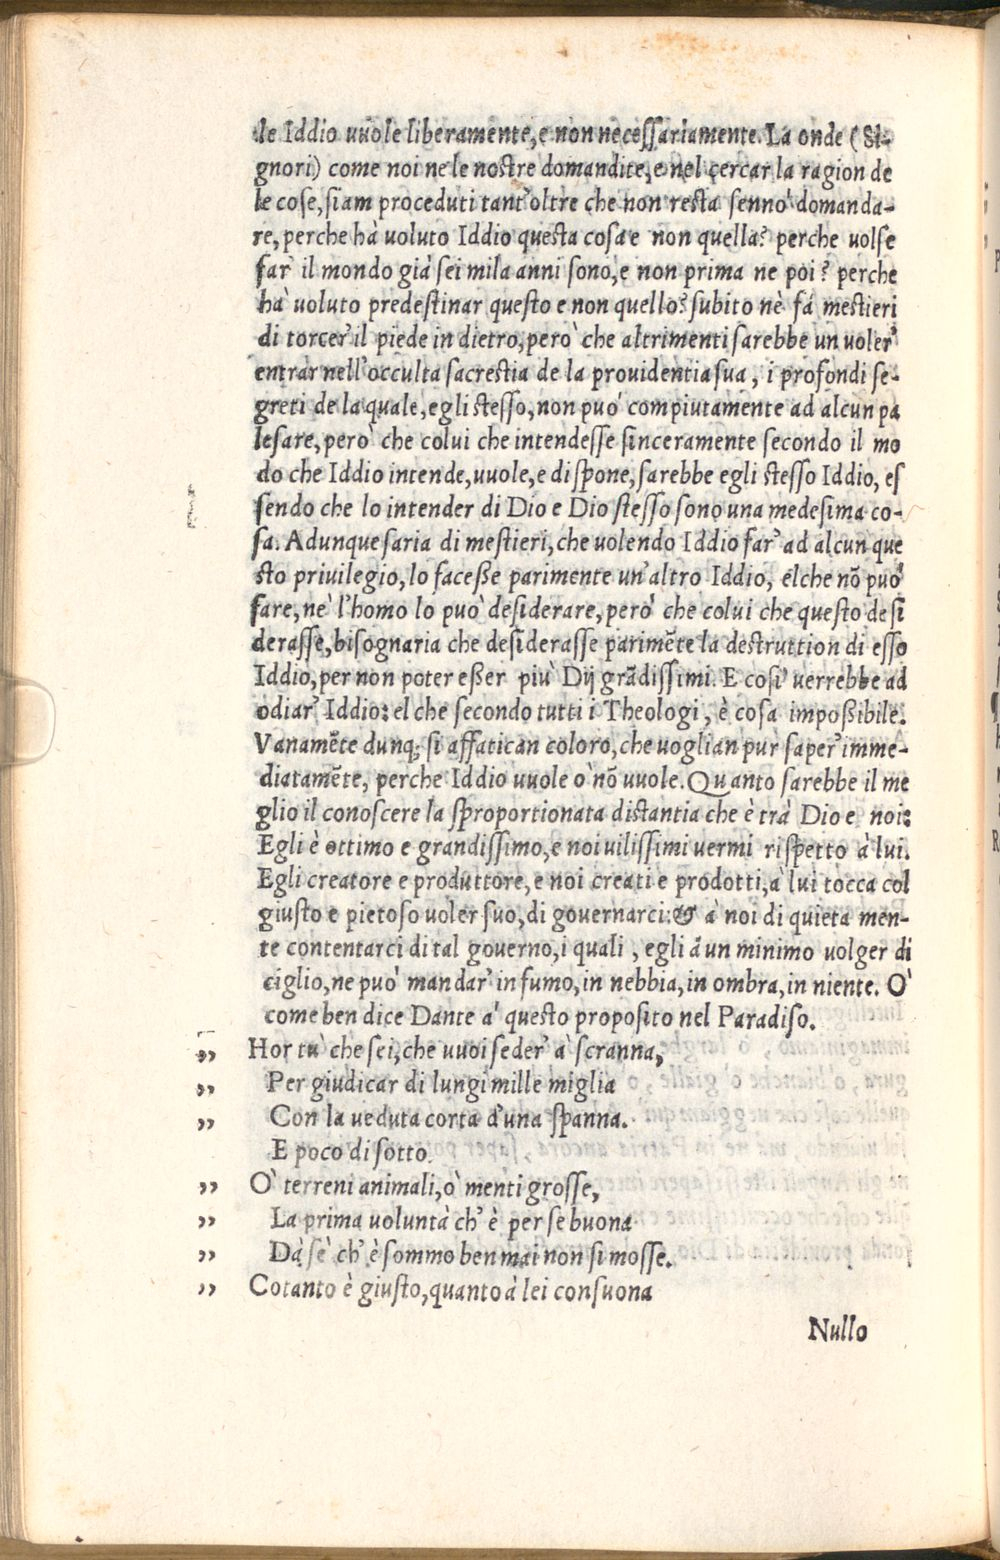 le Iddio vuole liberamente, e non necessariamente. La onde (Si-
gnori) come noi ne le nostre domandite, e nel cercar la ragion de
le cose, siam proceduti tant'oltre che non resta sennò domanda-
re, perche hà uoluto Iddio questa cosa e non quella? perche uolse
far' il mondo già sei mila anni sono, e non prima ne poi? perche
hà uoluto predestinar questo e non quello? subito nè fà mestieri
di torcer' il piede in dietro, però che altrimenti sarebbe un uoler'
entrar nell'occulta sacrestia de la prouidentia sua, i profondi se-
greti de la quale, egli stesso, non può compiutamente ad alcun pa
lesare, però che colui che intendesse sinceramente secondo il mo
do che Iddio intende, vuole, e dispone, sarebbe egli stesso Iddio, es
sendo che lo intender di Dio e Dio stesso sono una medesima co-
sa. Adunque saria di mestieri, che uolendo Iddio far' ad alcun que
sto priuilegio, lo facesse parimente un'altro Iddio, elche nõ può
fare, nè l'homo lo può desiderare, però che colui che questo desi
derasse, bisognaria che desiderasse parimẽte la destruttion di esso
Iddio, per non poter esser più Dij grãdissimi. E così uerrebbe ad
odiar' Iddio: el che secondo tutti i Theologi, è cosa impossibile.
Vanamẽte dunq; si affatican coloro, che uoglian pur saper' imme-
diatamẽte, perche Iddio vuole ò nõ vuole. Quanto sarebbe il me
glio il conoscere la sproportionata distantia che è trà Dio e noi:
Egli è ottimo e grandissimo, e noi uilissimi uermi rispetto à lui.
Egli creatore e produttore, e noi creati e prodotti, à lui tocca col
giusto e pietoso uoler suo, di gouernarci: & à noi di quieta men-
te contentarci di tal gouerno, i quali, egli ã un minimo uolger di
ciglio, ne può mandar' in fumo, in nebbia, in ombra, in niente. O'
come ben dice Dante à questo proposito nel Paradiso.
„ Hor tù che sei, che vuoi seder' à scranna,
„ Per giudicar di lungi mille miglia
„ Con la ueduta corta d'una spanna.
E poco di sotto.
„ O' terreni animali, ò menti grosse,
„ La prima uoluntà ch'è per se buona
„ Dà sè ch'è sommo ben mai non si mosse.
„ Cotanto è giusto, quanto à lei consuona
Nullo